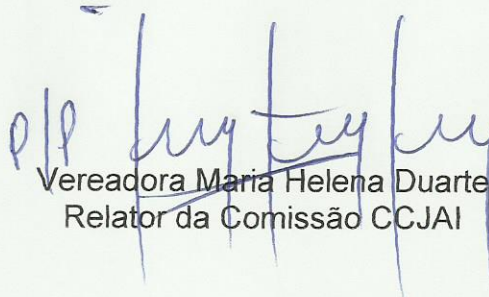 p/p
Vereadora Maria Helena Duarte
Relator da Comissão CCJAI